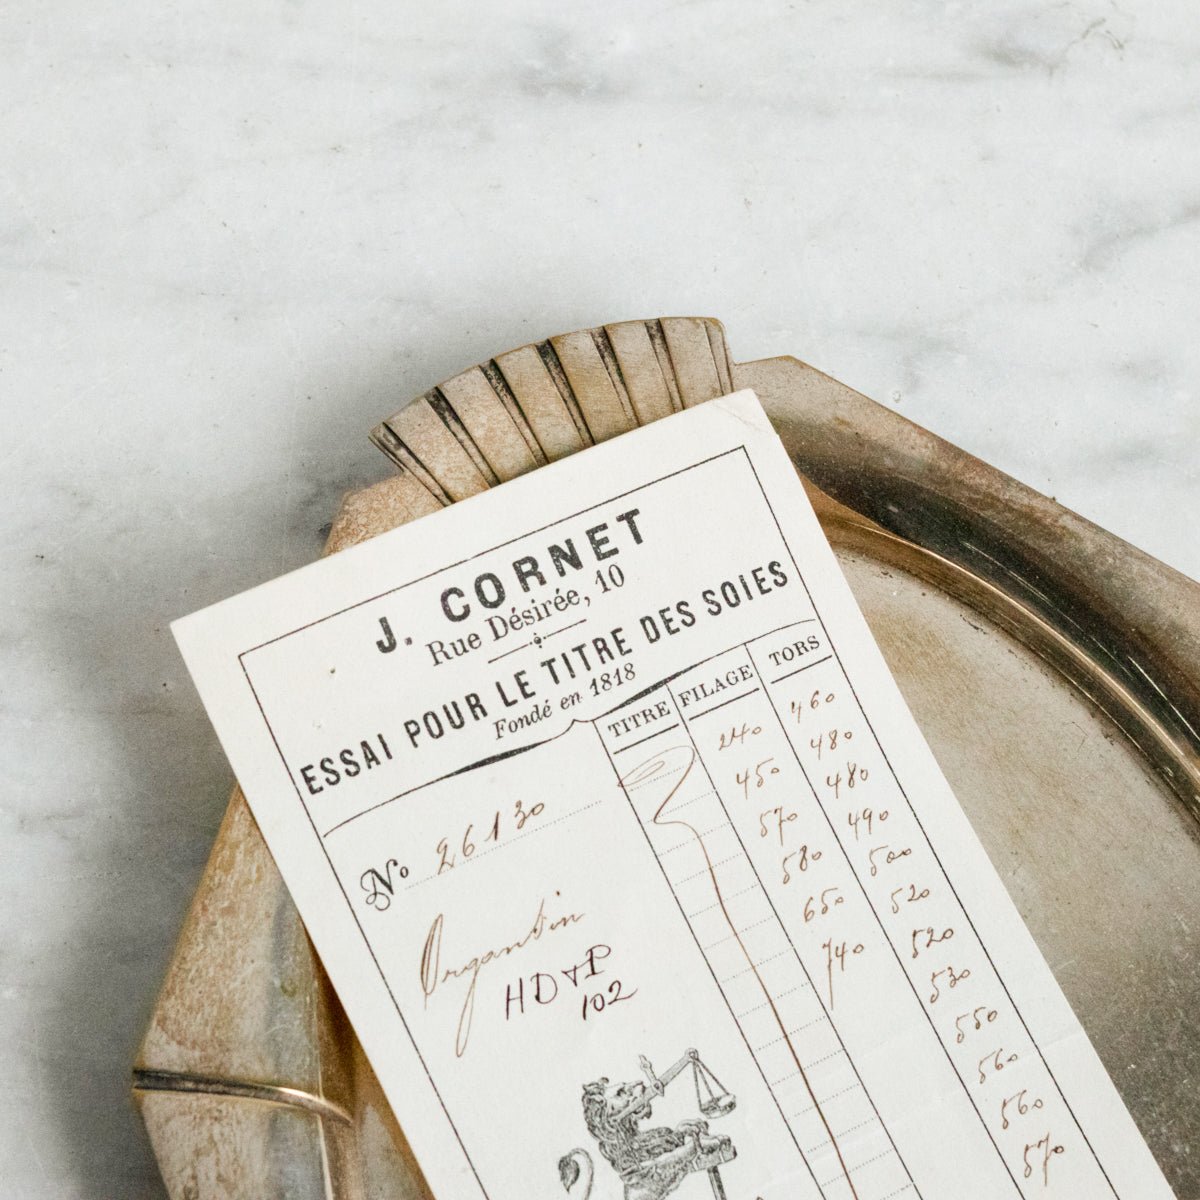 J. CORNET
Rue Désirée, 10
ESSAI POUR LE TITRE DES SOIES
Fondé en 1818
TITRE FILAGE TORS
No 26130
Organsin
HD & P
102
240 460
450 480
570 480
580 490
650 500
740 520
520
530
550
560
560
570